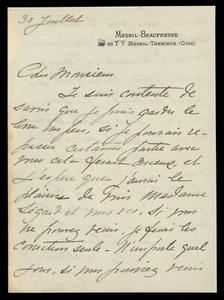 30 Juillet
MESNIL-BEAUFRESNE
MESNIL-THERIBUS (OISE)
Cher Monsieur
Je suis contente de
savoir que je puis garder le
livre un peu, si je pouvais re-
passer certaines parties avec
vous cela ferait mieux, et
j'espère que j'aurai le
plaisir de Madame
Segard et vous ici, si vous
ne pouvez venir, je ferai les
corrections seule - N'importe quel
jour, si vous pouvez venir